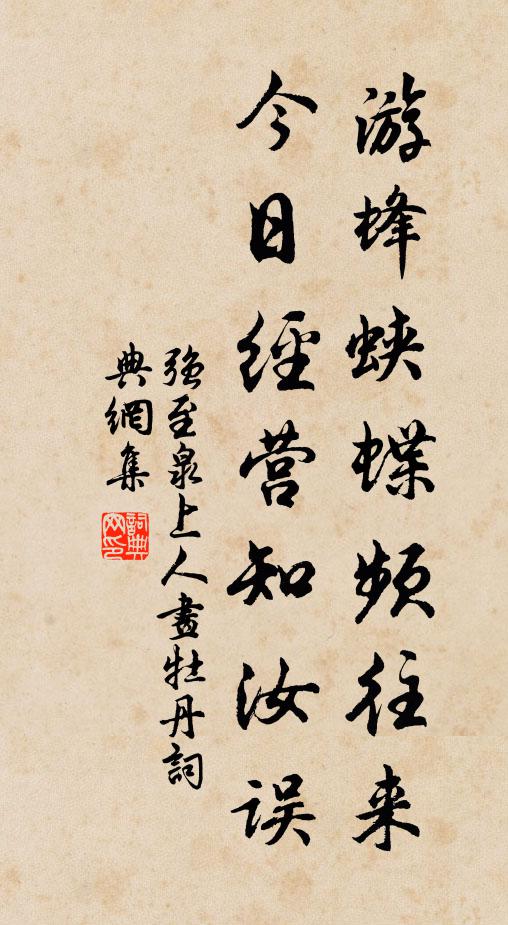 游蜂蛱蝶频往来
今日經营知汝误
强至泉上人畫牡丹詞
典網集
詞典
网印